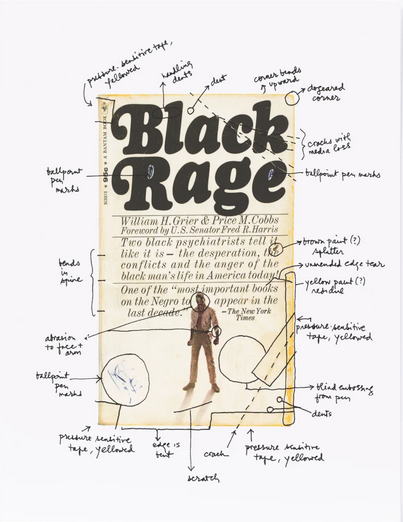 pressure-sensitive tape,
yellowed
handling
dents
dent
corner bends
upward
dogeared
corner
A BANTAM BOOK
95¢
Black
Rage
cracks with
media loss
ballpoint
pen
marks
ballpoint pen marks
William H. Grier & Price M. Cobbs
Foreword by U.S. Senator Fred R. Harris
Two black psychiatrists tell it
like it is—the desperation, the
conflicts and the anger of the
black man's life in America today!
One of the "most important books
on the Negro to appear in the
last decade." —The New York
Times
brown paint (?)
splatter
unmended edge tear
yellow paint (?)
residue
bends
in
spine
pressure-sensitive
tape, yellowed
abrasion
to face +
arm
ballpoint
pen
marks
blind embossing
from pen
dents
pressure sensitive
tape, yellowed
edge is
bent
crack
pressure sensitive
tape, yellowed
scratch